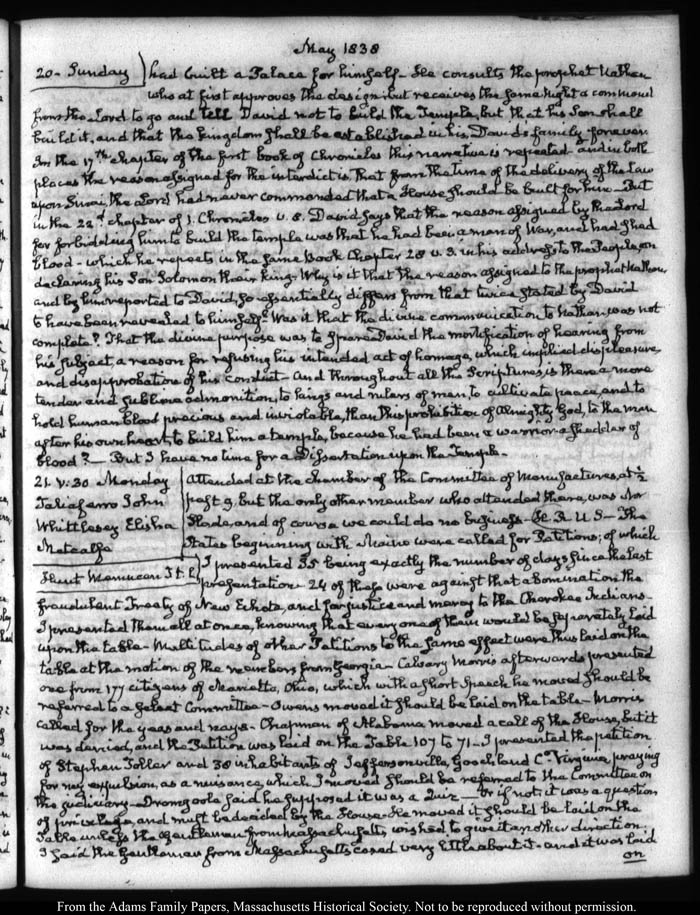 May 1838
20. Sunday
had built a Palace for himself. He consults the prophet Nathan
who at first approves the design; but receives the same night a command
from the Lord to go and tell David not to build the Temple, but that his Son shall
build it, and that the kingdom shall be established in his, David's family forever.
In the 17th chapter of the first book of Chronicles this narrative is repeated and in both
places the reason assigned for the interdict is that from the time of the delivery of the Law
upon Sinai, the Lord had never commanded that a House should be built for him. But
in the 22d chapter of 1. Chronicles v. 8. David says that the reason assigned by the Lord
for forbidding him to build the temple was that he had been a man of War, and had shed
blood - which he repeats in the same book Chapter 28 v. 3. in his address to the People, on
declaring his Son Solomon their king. Why is it that the reason assigned to the prophet Nathan,
and by him reported to David, so essentially differs from that twice stated by David
to have been revealed to himself? Was it that the divine communication to Nathan was not
complete? That the divine purpose was to spare David the mortification of hearing from
his subject, a reason for refusing his intended act of homage, which implied displeasure,
and disapprobation of his conduct. And throughout all the Scriptures, is there a more
tender and sublime admonition, to kings and rulers of men, to cultivate peace, and to
hold human blood precious and inviolable, than this prohibition of Almighty God, to the man
after his own heart, to build him a temple, because he had been a warrior a shedder of
blood? — But I have no time for a Dissertation upon the Temple.
21. V:30 Monday
Taliaferro John
Whittlesey Elisha
Metcalfe
Hunt
Attended at the chamber of the Committee of Manufactures, at ½
past 9, but the only other member who attended there, was Mr
Slade, and of course we could do no business - H. R. U S - The
States beginning with Maine were called for Petitions; of which
I presented 35 being exactly the number of days since the last
presentation. 24 of these were against that abomination the
fraudulent Treaty of New Echota, and for justice and mercy to the Cherokee Indians.
I presented them all at once, knowing that every one of them would be separately laid
upon the table. Multitudes of other Petitions to the same effect were thus laid on the
table at the motion of the members from Georgia - Calvary Morris afterwards presented
one from 177 citizens of Marietta, Ohio, which with a short Speech he moved should be
referred to a select Committee - Owens moved it should be laid on the table - Morris
called for the yeas and nays - Chapman of Alabama moved a call of the House, but it
was denied, and the Petition was laid on the Table 107 to 71 - I presented the petition
of Stephen Toller and 38 inhabitants of Jeffersonville, Goochland Cy Virginia, praying
for my expulsion, as a nuisance, which I moved should be referred to the Committee on
the Judiciary - Dromgoole said he supposed it was a Quiz — or if not, it was a question
of privilege, and must be decided by the House. He moved it should be laid on the
Table unless the Gentleman from Massachusetts, wished to give it another direction.
I said the Gentleman from Massachusetts cared very little about it - and it was laid
on
From the Adams Family Papers, Massachusetts Historical Society. Not to be reproduced without permission.